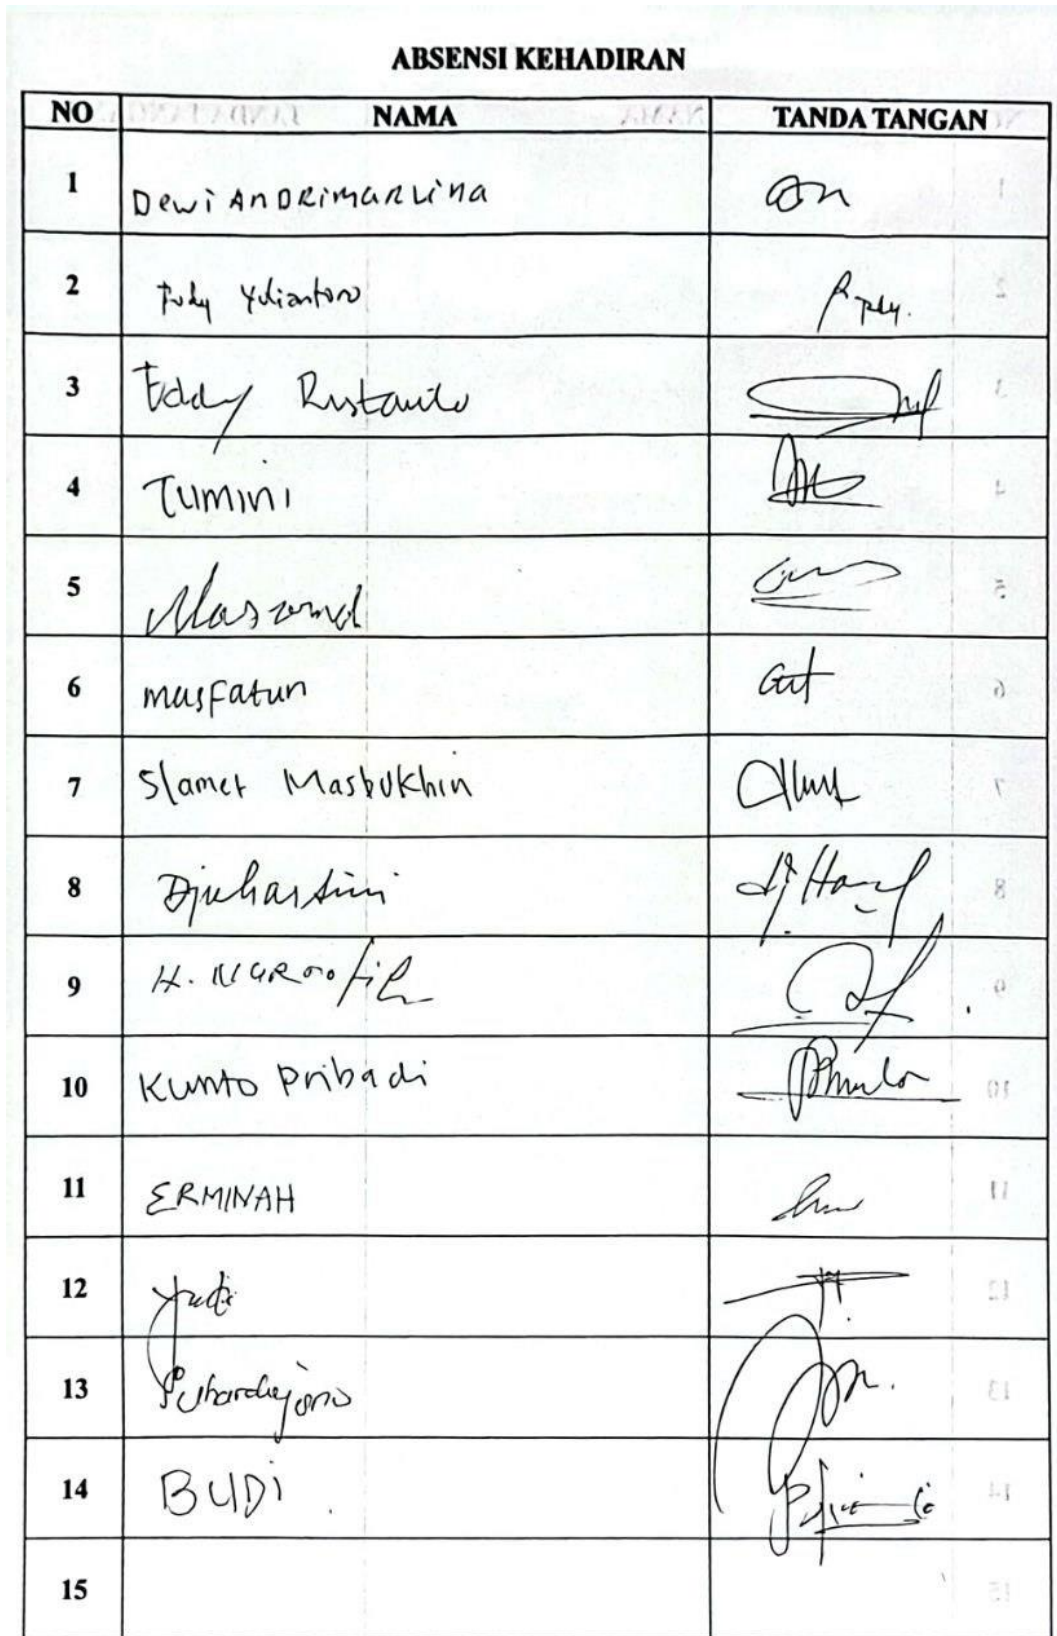 ABSENSI KEHADIRAN
NO NAMA TANDA TANGAN
1 Dewi ANDRIMARVINA
2 Yuliantoro
3 Eddy Rustanto
4 TUMINI
5
6 musfatun
7 Slamet Masbukhin
8 Djuhartini
9 H.
10 Kunto Pribadi
11 ERMINAH
12 Yudi
13 Suhardijono
14 BUDi
15